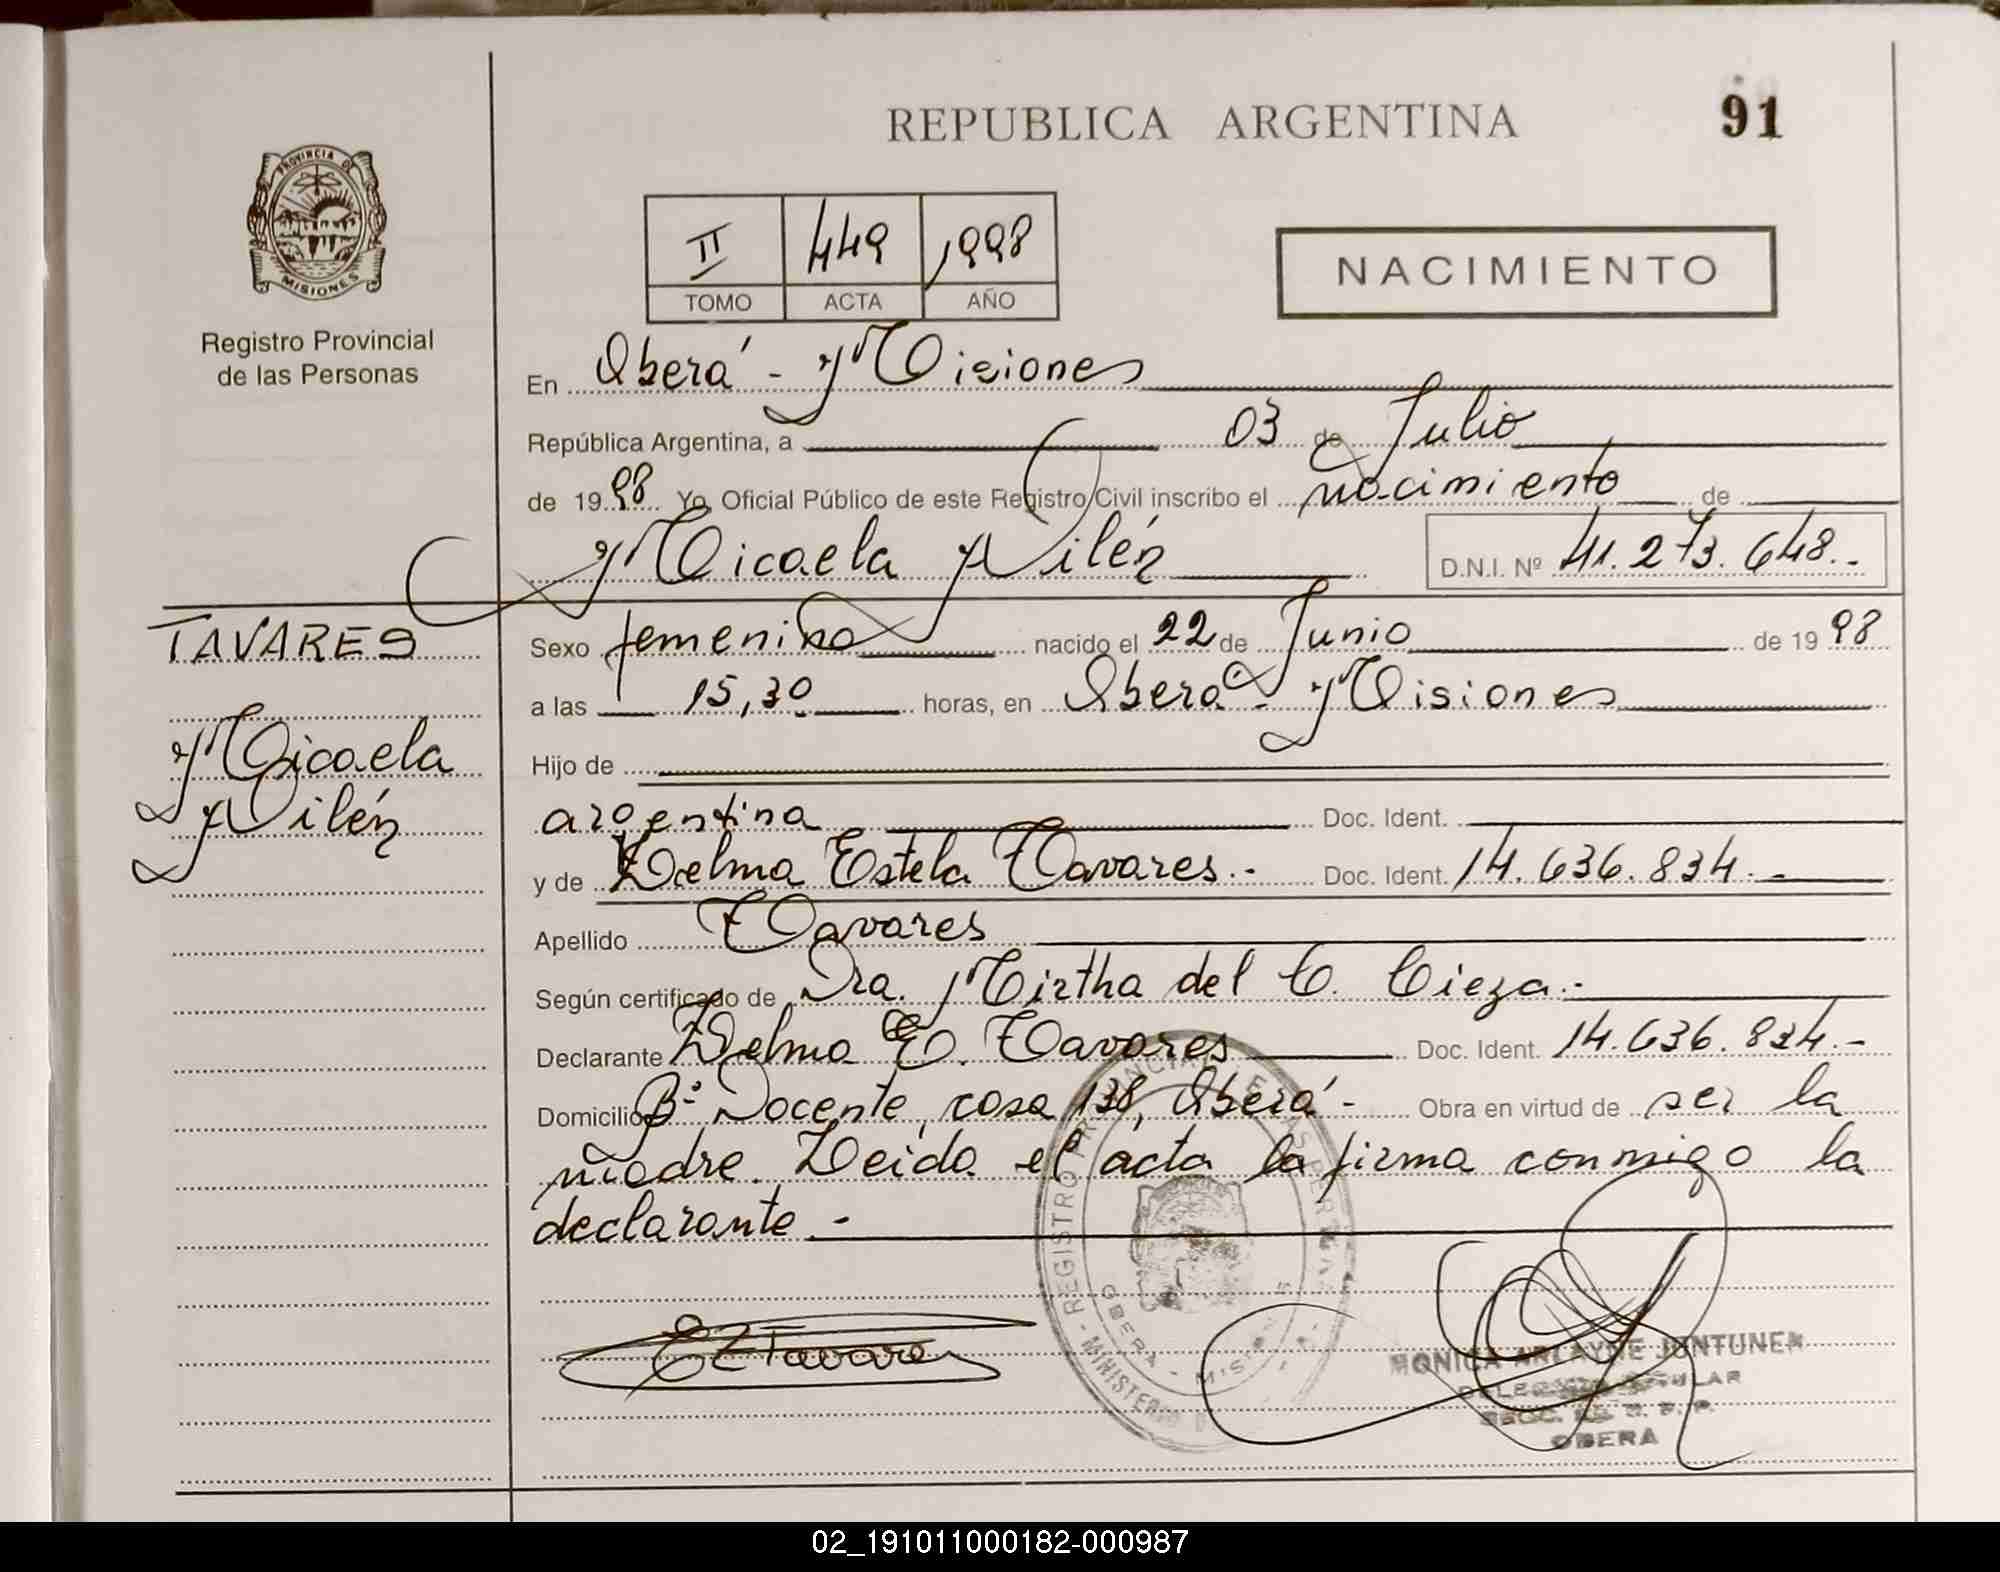 REPUBLICA ARGENTINA
91
PROVINCIA DE
MISIONES
Registro Provincial
de las Personas
II 449 1998
TOMO ACTA AÑO
NACIMIENTO
En Oberá - Misiones
República Argentina, a 03 de Julio
de 1998 Yo, Oficial Público de este Registro Civil inscribo el nacimiento de
Micaela Ailén
D.N.I. Nº 41.273.648.-
TAVARES
Micaela
Ailén
Sexo femenino nacido el 22 de Junio de 1998
a las 15,30 horas, en Oberá - Misiones
Hijo de
argentina Doc. Ident.
y de Delma Estela Tavares.- Doc. Ident. 14.636.834.-
Apellido Tavares
Según certificado de Dra. Mirtha del C. Cieza.-
Declarante Delma E. Tavares Doc. Ident. 14.636.834.-
Domicilio Bº Docente, casa 138, Oberá.- Obra en virtud de ser la
madre. Leída el acta la firma conmigo la
declarante.-
REGISTRO PROVINCIAL DE LAS PERSONAS
OBERA - MISIONES
MINISTERIO
Tavares
MONICA ARLAYNE JUNTUNEN
DELEGADA TITULAR
OBERA
02_191011000182-000987